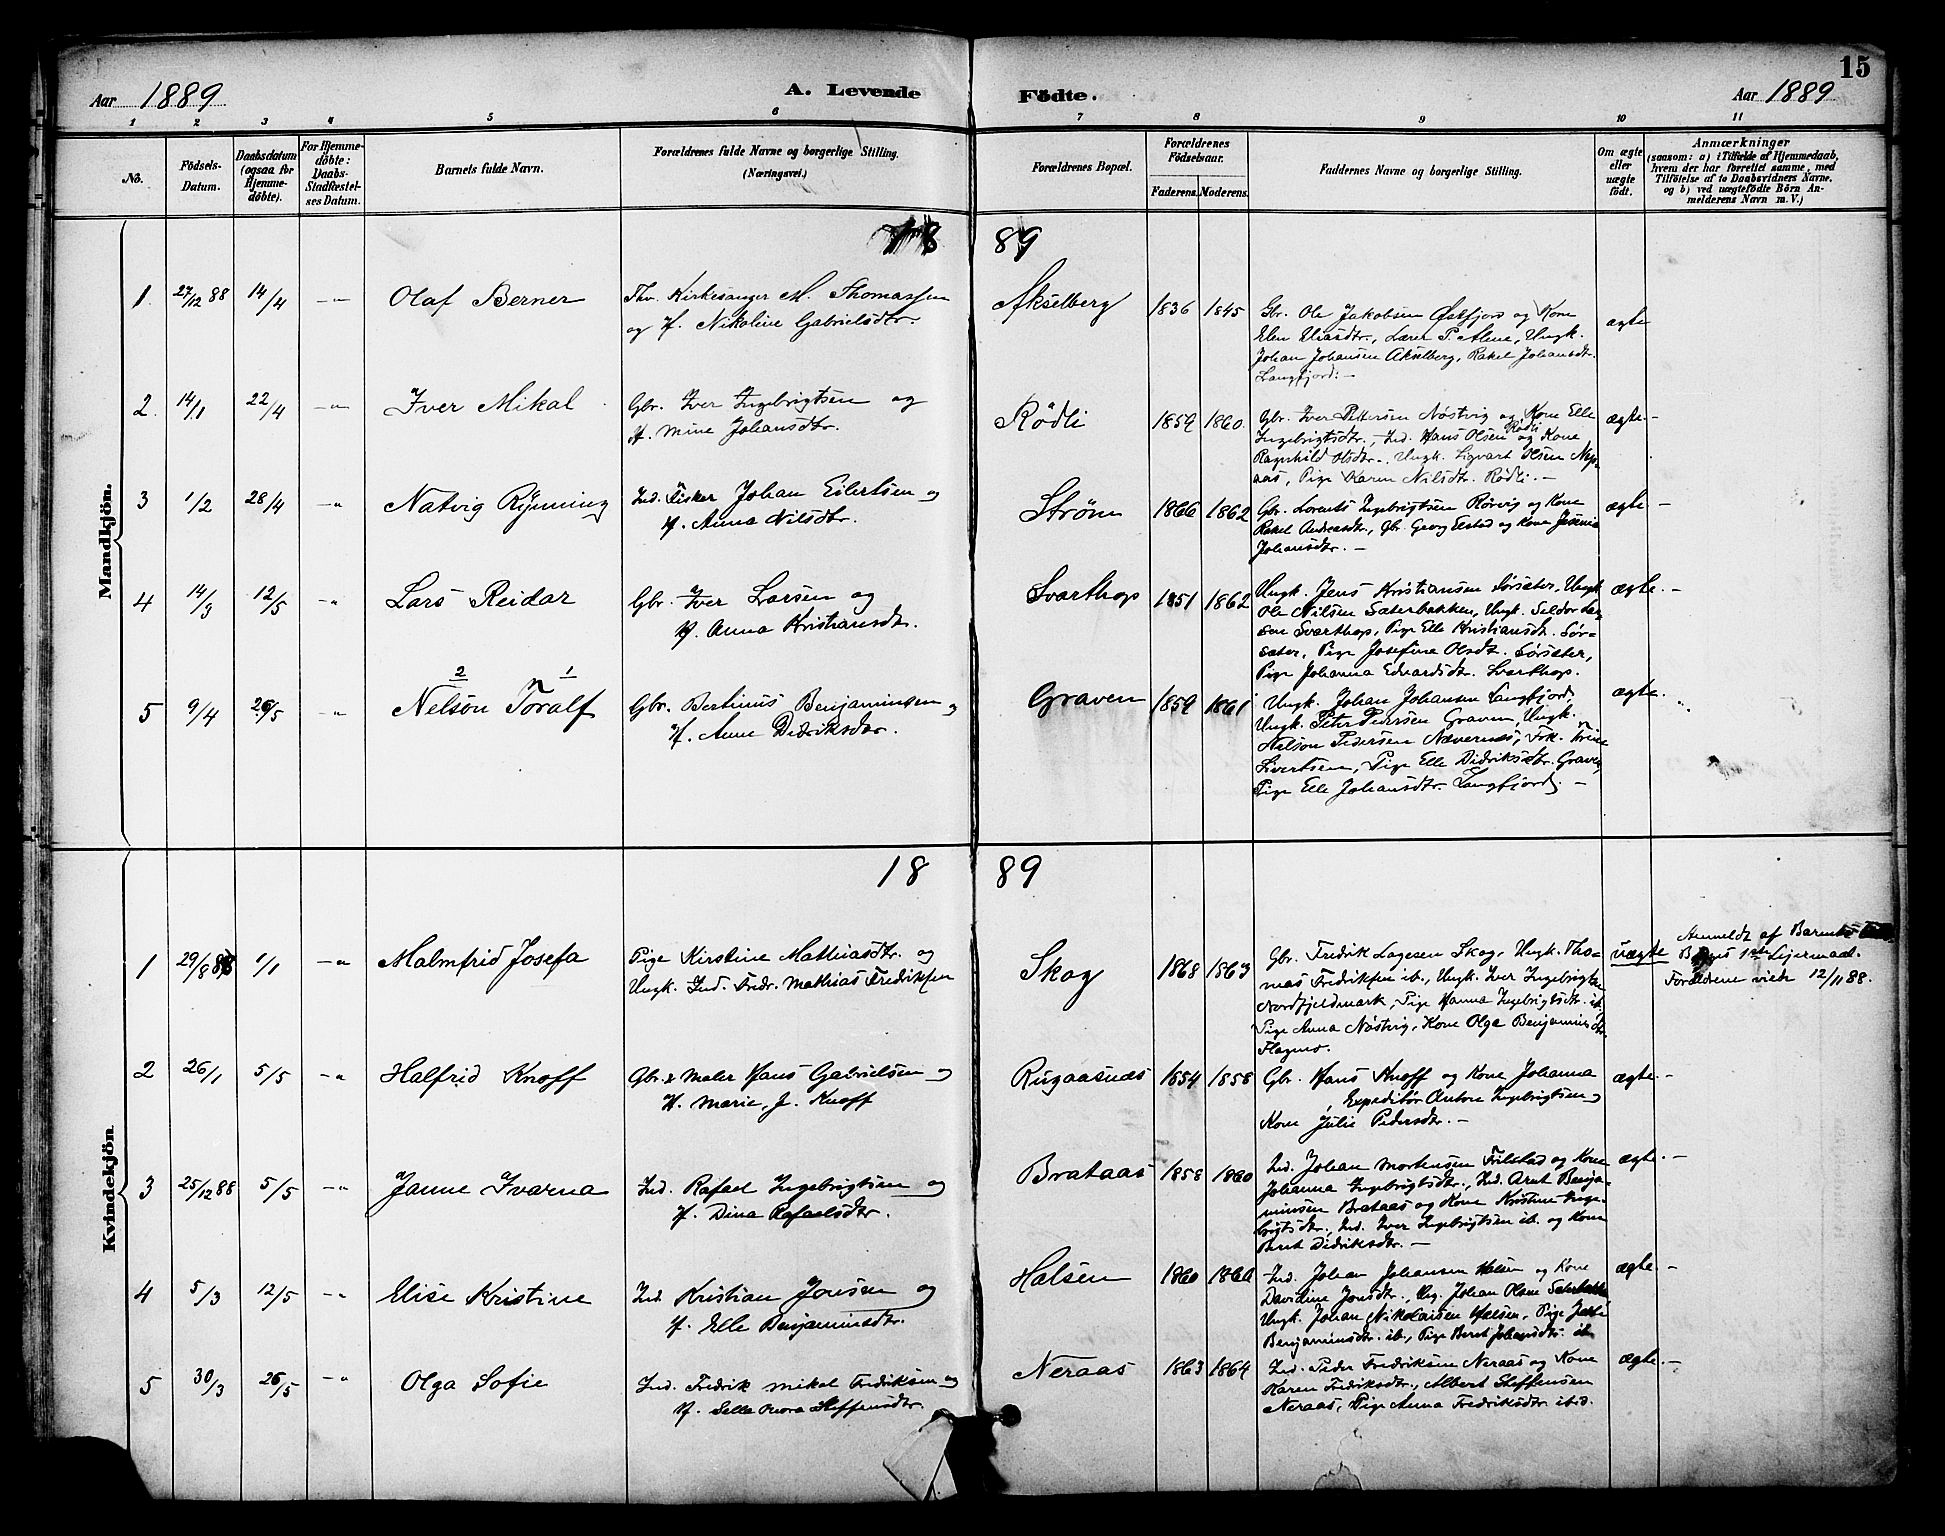 15
Aar 1889
A. Levende
Födte.
Aar 1889
1 2 3 4 5 6 7 8 9 10 11
No.
Födsels-
Datum.
Daabsdatum
(ogsaa for
Hjemme-
döbte).
For Hjemme-
döbte:
Daabs-
Stadfæstel-
ses Datum.
Barnets fulde Navn.
Forældrenes fulde Navne og borgerlige Stilling.
(Næringsvei.)
Forældrenes Bopæl.
Forældrenes
Födselsaar.
Faderens. Moderens.
Faddernes Navne og borgerlige Stilling.
Om ægte
eller
uægte
födt.
Anmærkninger
(saasom: a) i Tilfælde af Hjemmedaab,
hvem der har forrettet samme, med
Tilföielse af to Daabsvidners Navne,
og b) ved uægtefödte Börn An-
melderens Navn m. V.)
Mandkjön.
18 89
1. 27/12 88 14/4 -"- Olaf Berner
Thv. Kirkesanger M. Thomassen
og H. Nikoline Gabrielsdtr.
Akselberg 1836 1845
Gbr. Ole Jakobsen Østfjord og Kone
Elen Eliasdtr., Lærer P. Alme, Ungk.
Johan Johansen Akselberg, Rakel Johansdtr.
Langfjord. -
ægte
2. 14/1 22/4 -"- Iver Mikal
Gbr. Iver Ingebrigtsen og
H. Mine Johansdtr.
Rödli 1859 1860.
Gbr. Iver Pettersen Nöstvig og Kone Elle
Ingebrigtsdtr., Ind. Hans Olsen Rödli og Kone
Ragnhild Olsdtr., Ungk. Sigvart Olsen
Pige Karen Nilsdtr. Rödli. -
ægte. -
3 1/2 28/4 -"- Natvig Rynning
Ind. Fisker Johan Eilertsen og
H. Anna Nilsdtr.
Ström 1866 1862
Gbr. Lorents Ingebrigtsen Rörvig og Kone
Rakel Andreasdtr., Gbr. Georg Elstad og Kone Jesenia
Johansdtr. -
ægte. -
4 14/3 12/5 " Lars Reidar
Gbr. Iver Larsen og
H. Anna Kristiansdt.
Svarthop 1851 1862
Ungk. Jens Kristiansen Sörsæter, Ungk.
Ole Nilsen Sæterbakken, Ungk. Seldor Lar-
sen Svarthop, Pige Elle Kristiansdt. Sör-
sæter, Pige Josefine Olsdt. Sörsæter,
Pige Johanna Edvardsdt. Svarthop.
ægte. -
2 1
5 9/4 26/5 -"- Nelson Toralf
Gbr. Bertinus Benjaminsen og
H. Anne Didriksdtr.
Graven 1859 1861
Ungk. Johan Johansen Langfjord,
Ungk. Peter Pedersen Graven, Ungk.
Nelson Pedersen Nævernes, Frk. Trine
Sivertsen, Pige Elle Didriksdtr. Graven,
Pige Elle Johansdtr. Langfjord. -
ægte. "
Kvindekjön.
18 89
1 29/8 88 1/1 -"- Malmfrid Josefa
Pige Kirstine Mathiasdtr. og
Ungk. Ind. Fredr. Mathias Fredriksen
Skog 1868 1863
Gbr. Fredrik Lagesen Skog, Ungk. Tho-
mas Fredriksen ib., Ungk. Iver Ingebrigtsen
Nordfjeldmark, Pige Hanna Ingebrigtsdtr. ib.
Pige Anna Nöstvig, Kone Olga Benjaminsdtr.
Flagmo.
uægte
Anmeldt af Barnets
1ste Leiermaal.
Forældrene viede 12/11 88.
2 26/1 5/5 -"- Halfrid Knoff
Gbr. & Maler Hans Gabrielsen og
H. Marie J. Knoff
Rugaasnæs 1854 1858
Gbr. Hans Knoff og Kone Johanna
Expeditör Anton Ingebrigtsen og
Kone Julie Pedersdtr. -
ægte. -
3 25/12 88 5/5 -"- Janne Ivarna
Ind. Rafael Ingebrigtsen og
H. Dina Rafaelsdtr.
Brataas 1858 1860
Ind. Johan Mortensen Frilstad og Kone
Johanna Ingebrigtsdtr., Ind. Arnt Benja-
minsen Brataas og Kone Kristine Inge-
brigtsdtr., Ind. Iver Ingebrigtsen ib. og Kone
Beret Didriksdtr. -
ægte. -
4 5/3 12/5 -"- Elise Kristine
Ind. Kristian Jonsen og
H. Elle Benjaminsdtr.
Halsen 1860 1866
Ind. Johan Johansen Holm og Kone
Davidine Jonsdtr., Ung. Johan Olsen
Ungk. Johan Nikolaisen Halsen, Pige
Benjaminsdtr. ib., Pige Beret Johansdtr. ib
ægte. -
5 30/3 26/5 -"- Olga Sofie
Ind. Fredrik Mikal Fredriksen og
H. Selle Nora Steffensdtr.
Neraas 1863 1864
Ind. Peder Fredriksen Neraas og Kone
Karen Fredriksdtr., Albert Steffensen
Neraas, Pige Anna Fredriksdtr ibid.
ægte. -